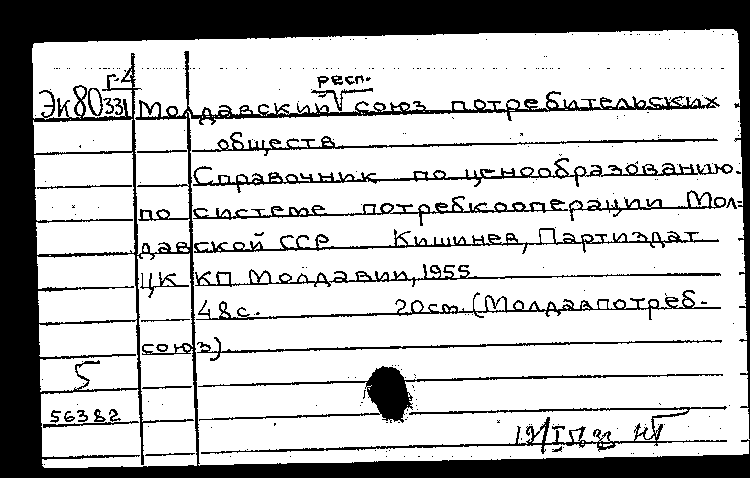 г-4
респ.
Эк80331 Молдавский союз потребительских
обществ
Справочник по ценообразованию
по системе потребкооперации Мол-
давской ССР Кишинев, Партиздат
ЦК КП Молдавии, 1955.
48с. 20см. (Молдавпотреб-
союз).
5
56382